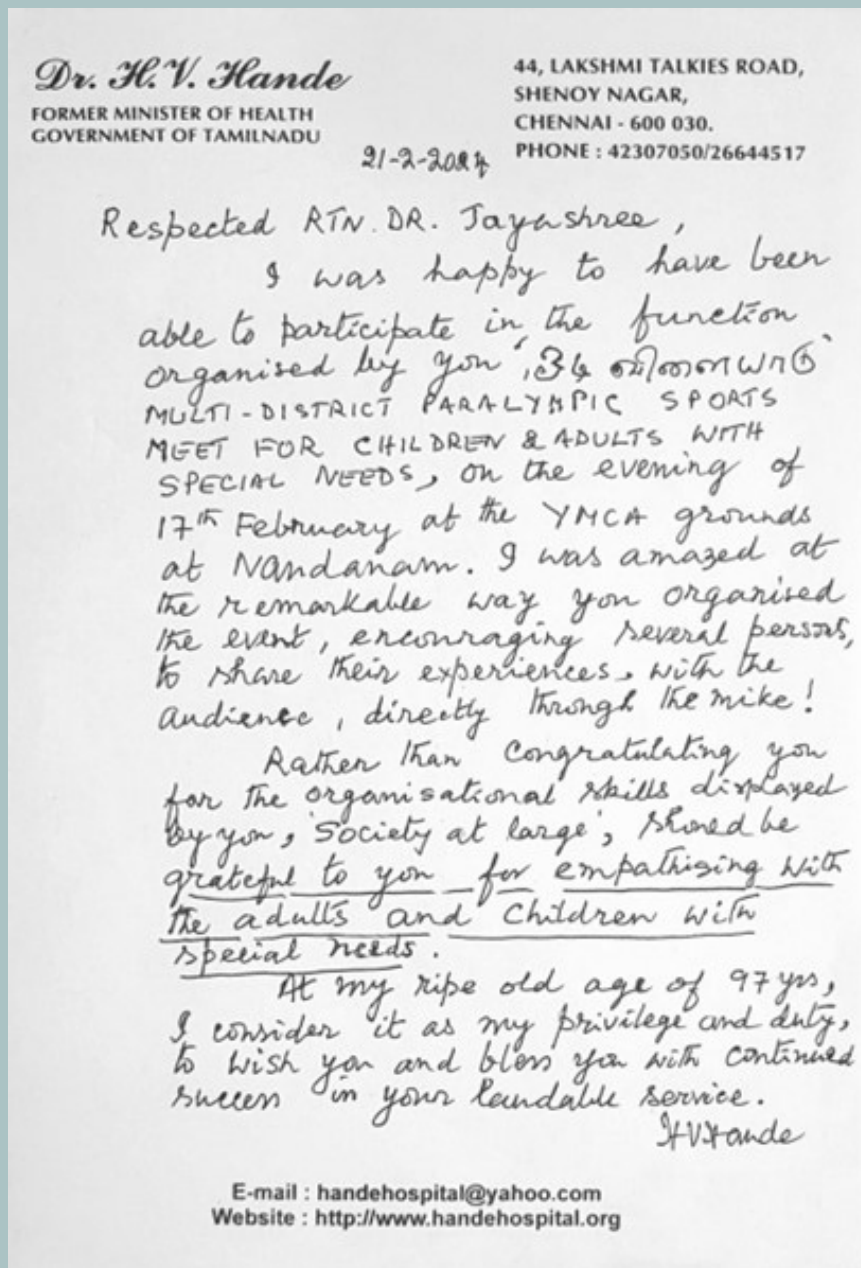 Dr. H.V. Hande
FORMER MINISTER OF HEALTH
GOVERNMENT OF TAMILNADU
44, LAKSHMI TALKIES ROAD,
SHENOY NAGAR,
CHENNAI - 600 030.
PHONE : 42307050/26644517
21-2-2024
Respected RTN. DR. Jayashree,
I was happy to have been
able to participate in the function
organised by you 'ஓடி விளையாடு'
MULTI-DISTRICT PARALYMPIC SPORTS
MEET FOR CHILDREN & ADULTS WITH
SPECIAL NEEDS, on the evening of
17th February at the YMCA grounds
at Nandanam. I was amazed at
the remarkable way you organised
the event, encouraging several persons,
to share their experiences, with the
audience, directly through the mike!
Rather than congratulating you
for the organisational skills displayed
by you, 'Society at large', should be
grateful to you for empathising with
the adults and children with
special needs.
At my ripe old age of 97 yrs,
I consider it as my privilege and duty,
to wish you and bless you with continued
success in your laudable service.
HVHande
E-mail : handehospital@yahoo.com
Website : http://www.handehospital.org